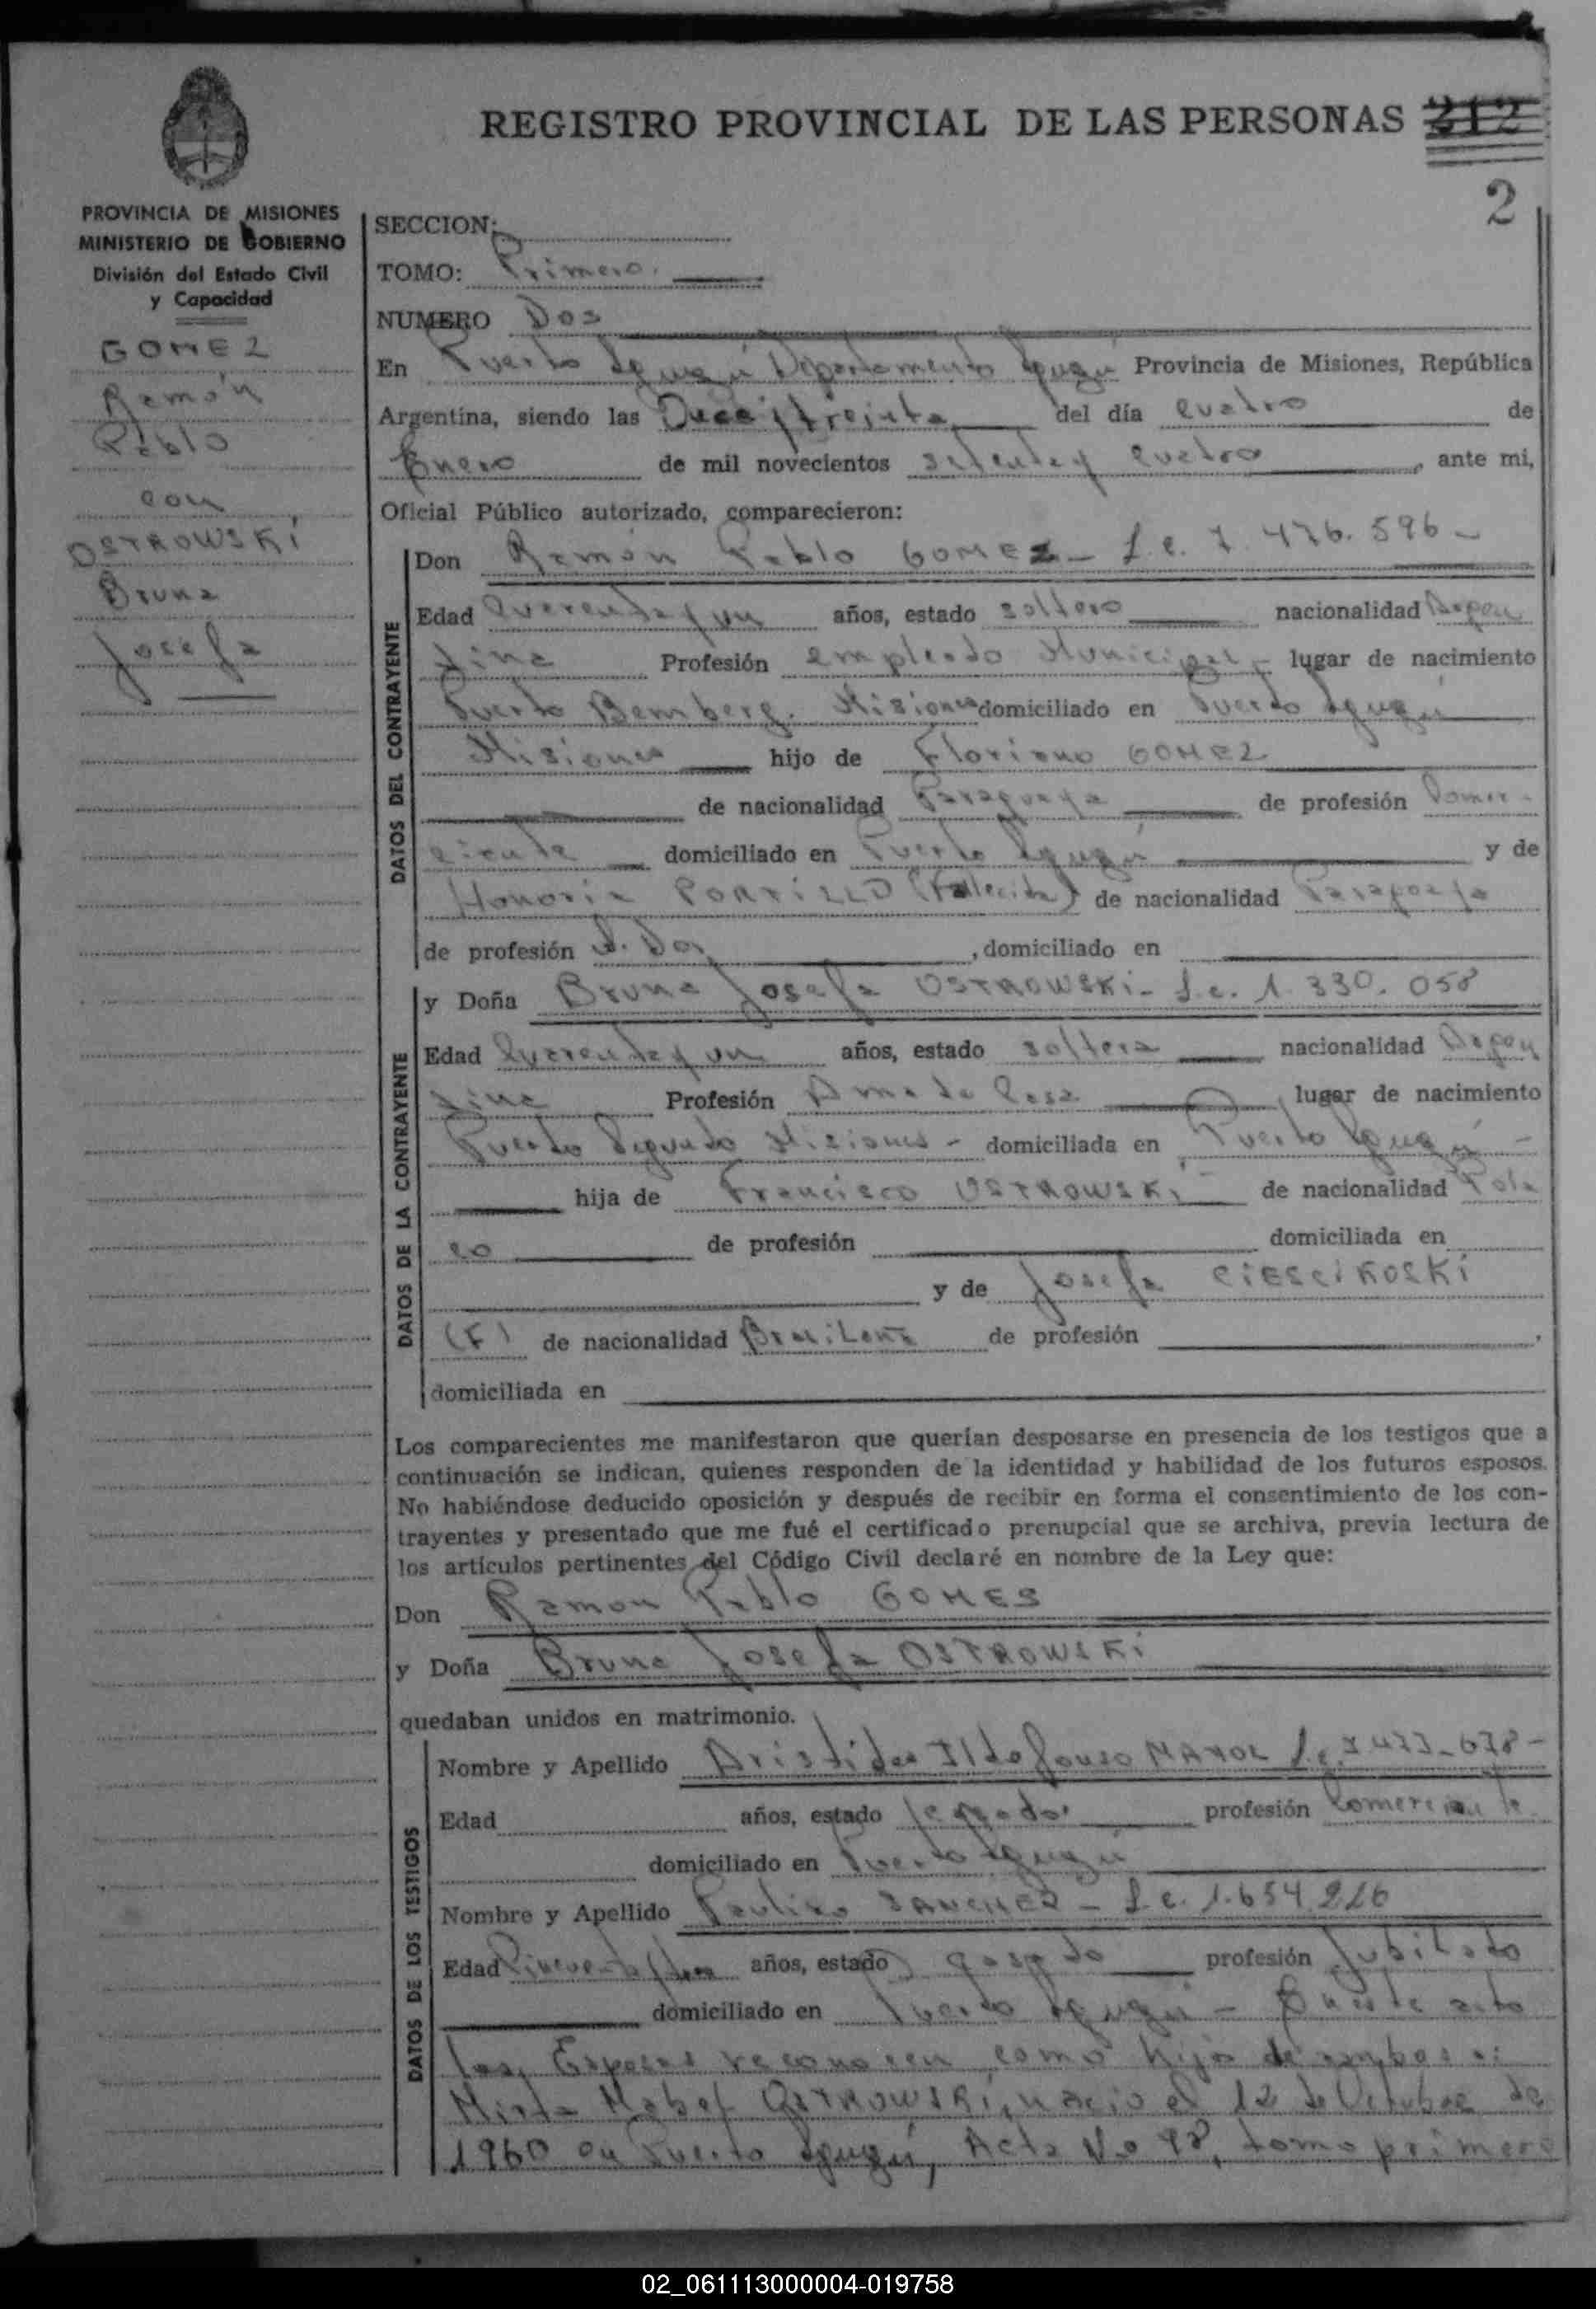 REGISTRO PROVINCIAL DE LAS PERSONAS 212
2
PROVINCIA DE MISIONES
MINISTERIO DE GOBIERNO
División del Estado Civil
y Capacidad
GOMEZ
Ramón
Pablo
con
OSTROWSKI
Bruna
Josefa
SECCION:
TOMO: Primero.
NUMERO Dos
En Puerto Iguazú Departamento Iguazú Provincia de Misiones, República
Argentina, siendo las Doce y treinta del día cuatro de
Enero de mil novecientos setenta y cuatro, ante mi,
Oficial Público autorizado, comparecieron:
DATOS DEL CONTRAYENTE
Don Ramón Pablo GOMEZ - L.e. 7.476.596 -
Edad Cuarenta y un años, estado soltero nacionalidad Argen
tina Profesión empleado Municipal - lugar de nacimiento
Puerto Bemberg. Misiones domiciliado en Puerto Iguazú
Misiones hijo de Floriano GOMEZ
de nacionalidad Paraguaya de profesión Comer-
ciante domiciliado en Puerto Iguazú y de
Honoria PORTILLO (Fallecida) de nacionalidad Paraguaya
de profesión , domiciliado en
DATOS DE LA CONTRAYENTE
y Doña Bruna Josefa OSTROWSKI - L.c. 1.330.058
Edad Cuarenta y un años, estado soltera nacionalidad Argen
tina Profesión Ama de Casa , lugar de nacimiento
Puerto Segundo Misiones - domiciliada en Puerto Iguazú -
hija de Francisco OSTROWSKI de nacionalidad Pola
co de profesión domiciliada en
y de Josefa CIESCIKOSKI
(F) de nacionalidad Brasilena de profesión ,
domiciliada en
Los comparecientes me manifestaron que querían desposarse en presencia de los testigos que a
continuación se indican, quienes responden de la identidad y habilidad de los futuros esposos.
No habiéndose deducido oposición y después de recibir en forma el consentimiento de los con-
trayentes y presentado que me fué el certificado prenupcial que se archiva, previa lectura de
los artículos pertinentes del Código Civil declaré en nombre de la Ley que:
Don Ramon Pablo GOMES
y Doña Bruna Josefa OSTROWSKI
quedaban unidos en matrimonio.
DATOS DE LOS TESTIGOS
Nombre y Apellido Aristides Ildefonso MAYOL L.e. 7.473-678-
Edad años, estado profesión Comerciante
domiciliado en Puerto Iguazú
Nombre y Apellido Paulino SANCHEZ - L.e. 1.654.216
Edad Cincuenta y años, estado casado profesión Jubilado
domiciliado en Puerto Iguazú - En este acto
los Esposos reconocen como hija de ambos a:
Mirta Mabel OSTROWSKI, nacio el 12 de Octubre de
1960 en Puerto Iguazú, Acta No 98, tomo primero
02_061113000004-019758